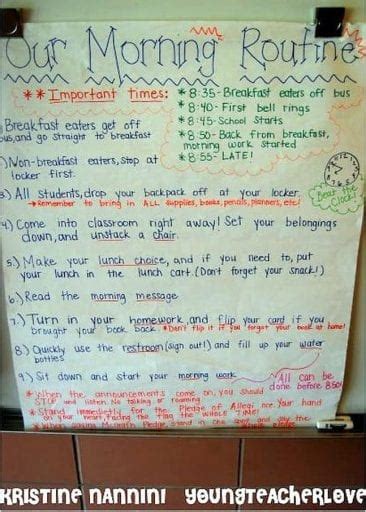 Our Morning Routine
** Important Times:
* 8:35- Breakfast eaters off bus
* 8:40- First bell rings
* 8:45- School starts
* 8:50- Back from breakfast,
morning work started
* 8:55- LATE!
Breakfast eaters get off
bus, and go straight to breakfast
Non-breakfast eaters, stop at
locker first.
3.) All students, drop your backpack off at your locker.
→Remember to bring in ALL supplies, books, pencils, planners, etc!
Beat the Clock!
4.) Come into classroom right away! Set your belongings
down, and unstack a chair.
5.) Make your lunch choice, and if you need to, put
your lunch in the lunch cart. (Don't forget your snack!)
6.) Read the morning message
7.) Turn in your homework, and flip your card if you
brought your book back *Don't flip it if you forgot your book at home!
8.) Quickly use the restroom (sign out!) and fill up your water
bottles
9.) Sit down and start your morning work
All can be
done before 8:50!
* When the announcements come on, you should
STOP and listen. No talking or roaming
* Stand immediately for the Pledge of Allegi ance. Your hand
on your heart, facing the flag the WHOLE TIME!
Pledge, stand in one spot and say the
KRISTINE NANNINI YOUNGTEACHERLOVE